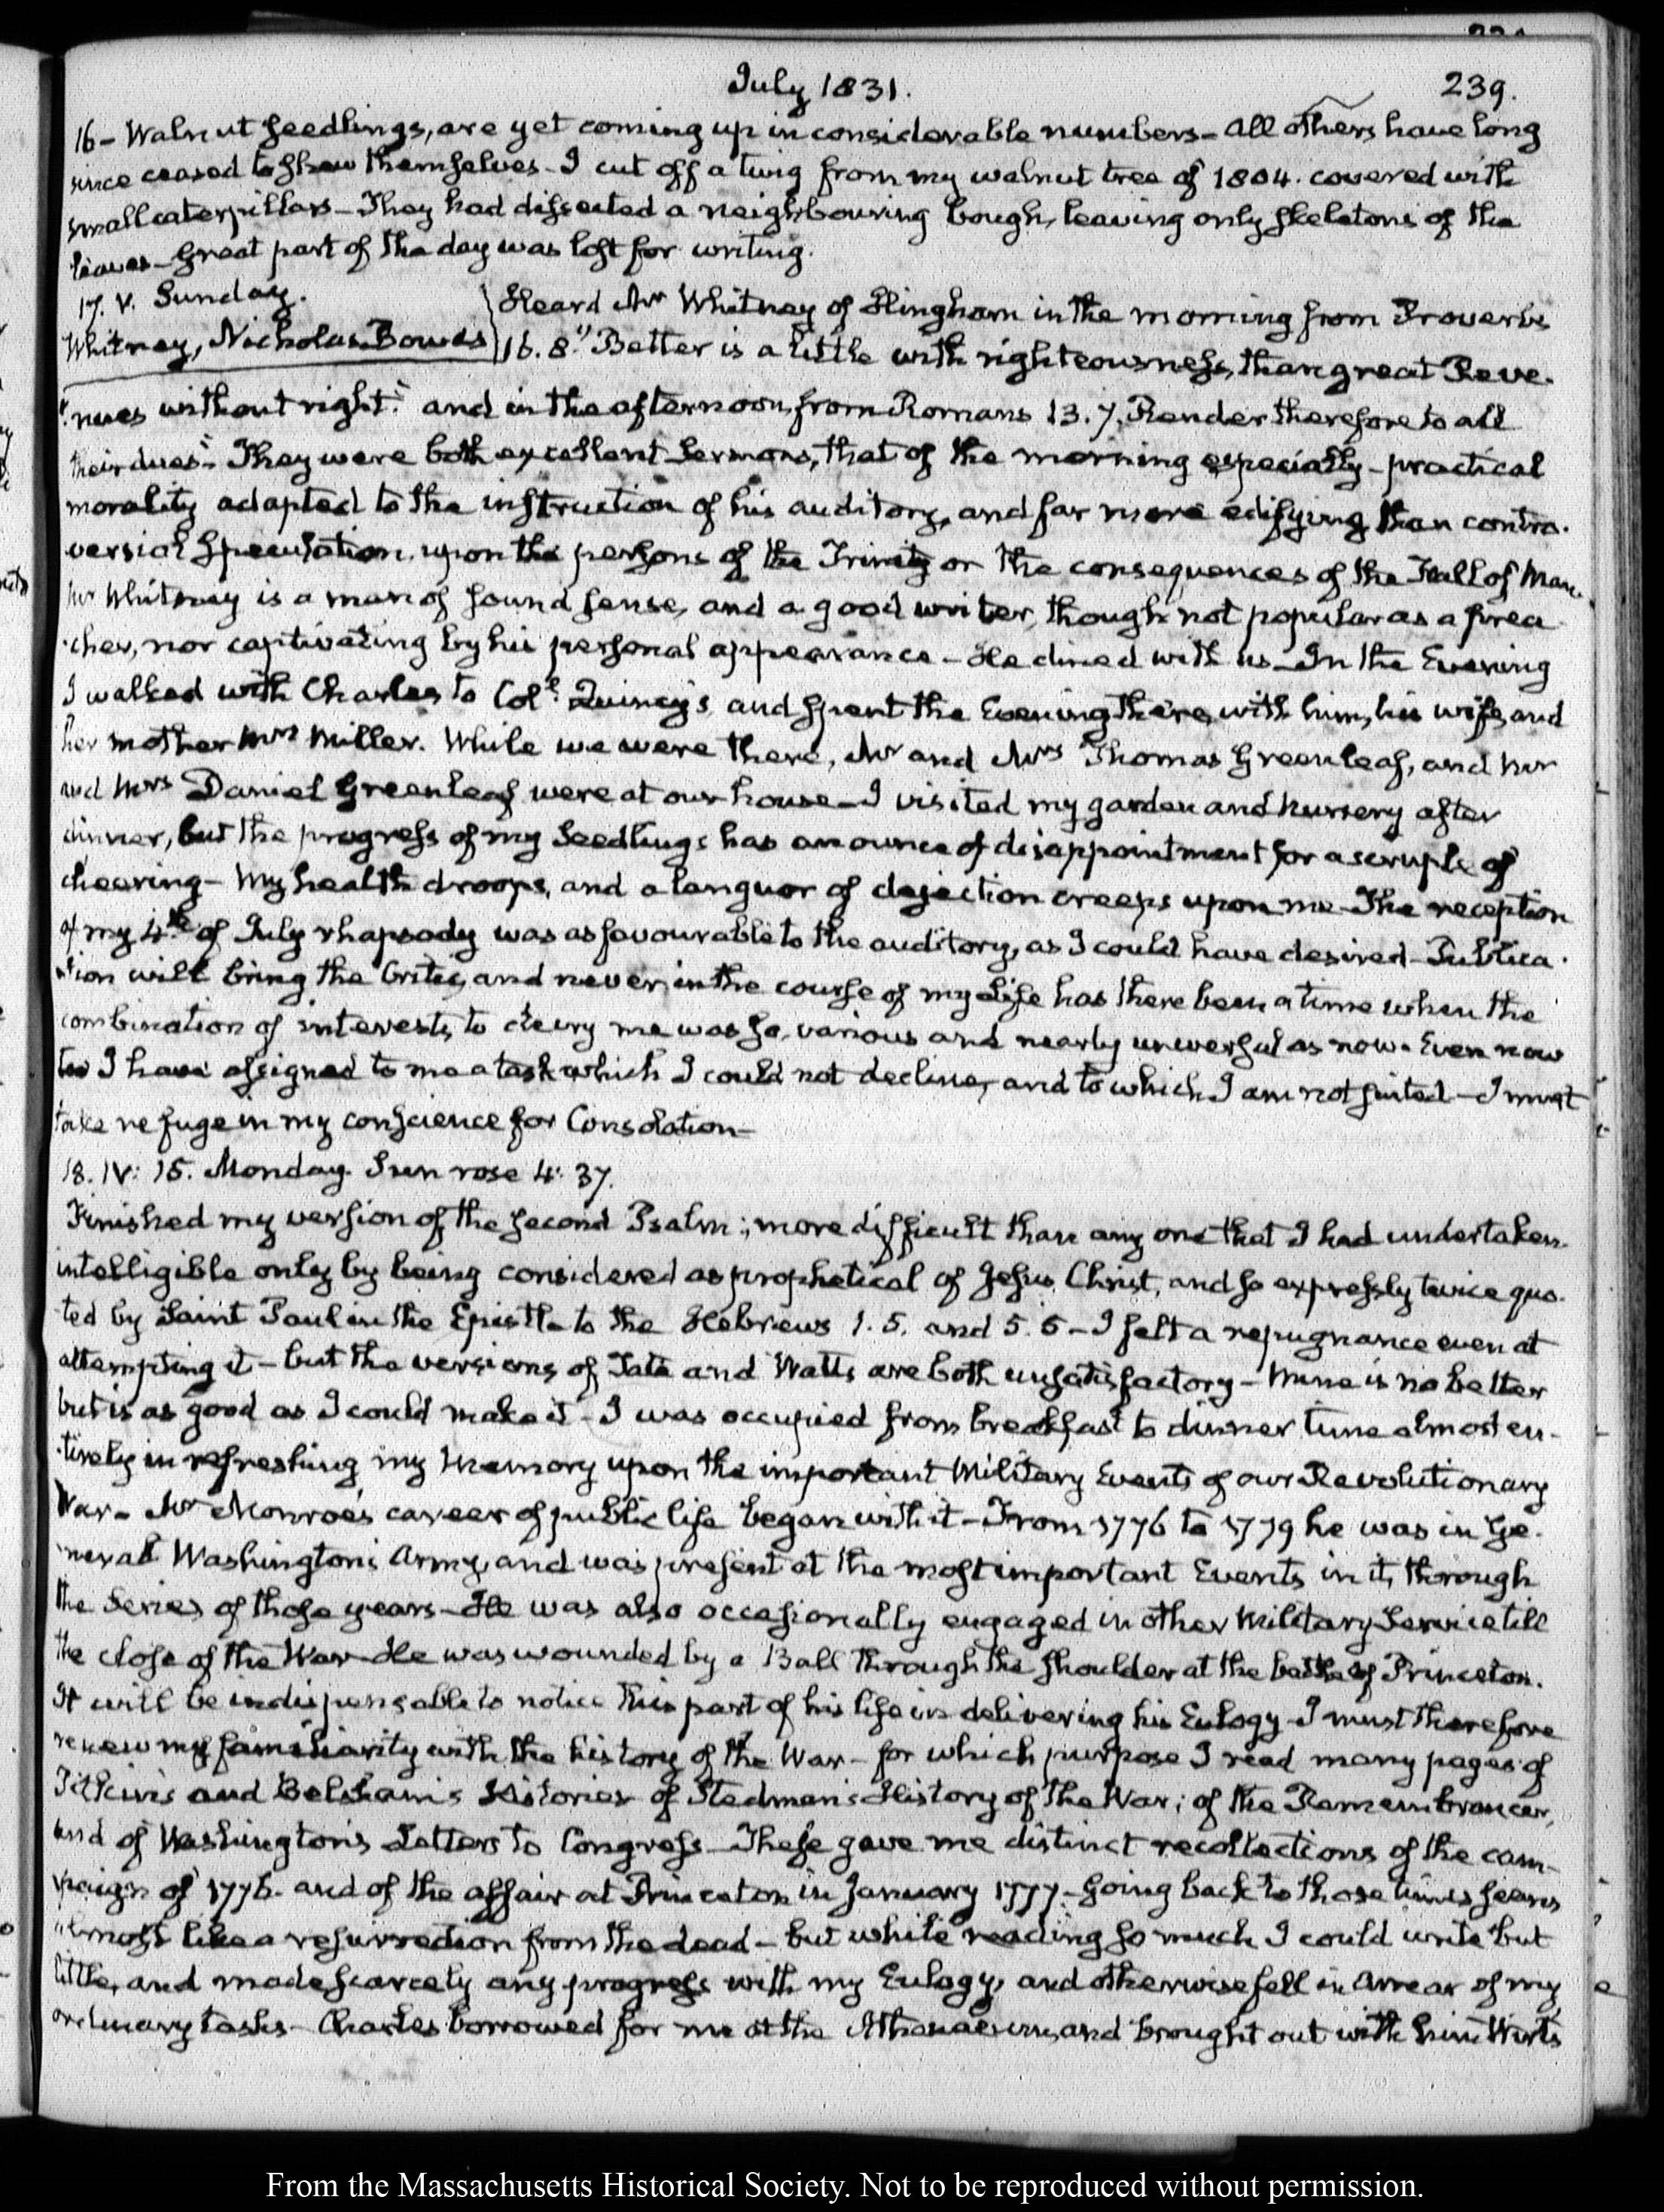 July 1831.
239.
16 - Walnut Seedlings, are yet coming up in considerable numbers - All others have long
since ceased to shew themselves - I cut off a twig from my walnut tree of 1804. covered with
small caterpillars - They had dissected a neighbouring bough, leaving only skeletons of the
leaves - Great part of the day was lost for writing.
17. V. Sunday.
Whitney, Nicholas Bowes
Heard Mr Whitney of Hingham in the morning from Proverbs
16. 8. "Better is a little with righteousness, than great Reve-
"nues without right." and in the afternoon, from Romans 13. 7. Render therefore to all
their dues." They were both excellent Sermons, that of the morning especially - practical
morality adapted to the instruction of his auditory, and far more edifying than contro-
versial Speculation upon the persons of the Trinity or the consequences of the Fall of Man.
Mr Whitney is a man of sound sense, and a good writer, though not popular as a prea
-cher, nor captivating by his personal appearance - He dined with us - In the Evening
I walked with Charles to Coll. Quincy's and spent the Evening there, with him, his wife, and
her mother Mrs Miller. While we were there, Mr and Mrs Thomas Greenleaf, and Mr
and Mrs Daniel Greenleaf were at our house - I visited my garden and Nursery after
dinner, but the progress of my Seedlings has an ounce of disappointment for a scruple of
cheering - My health droops, and a languor of dejection creeps upon me - The reception
of my 4th of July rhapsody was as favourable to the auditory, as I could have desired - Publica-
-tion will bring the Critic, and never in the course of my Life has there been a time when the
combination of interests, to decry me was so various and nearly universal as now. Even now
too I have assigned to me a task which I could not decline, and to which I am not suited - I must
take refuge in my conscience for Consolation -
18. IV: 15. Monday. Sun rose 4: 37.
Finished my version of the second Psalm; more difficult than any one that I had undertaken.
intelligible only by being considered as prophetical of Jesus Christ, and so expressly twice quo-
ted by Saint Paul in the Epistle to the Hebrews 1. 5. and 5. 5 - I felt a repugnance even at
attempting it - but the versions of Tate and Watts are both unsatisfactory - Mine is no better
but is as good as I could make it - I was occupied from breakfast to dinner time almost en-
-tirely in refreshing my Memory upon the important Military Events of our Revolutionary
War - Mr Monroe's career of public life began with it - From 1776 to 1779 he was in Ge-
-neral Washington's Army, and was present at the most important Events in it, thorough
the Series of those years - He was also occasionally engaged in other Military Service till
the close of the War - He was wounded by a Ball through the shoulder at the battle of Princeton.
It will be indispensable to notice this part of his life in delivering his Eulogy - I must therefore
renew my familiarity with the history of the War - for which purpose I read many pages of
Pitkin's and Belsham's Histories of Stedman's History of the War; of the Remembrancer,
and of Washington's Letters to Congress - These gave me distinct recollections of the cam-
-paign of 1776. and of the affair at Princeton in January 1777 - Going back to those times seems
almost like a resurrection from the dead - but while reading so much I could write but
little, and made scarcely any progress with my Eulogy, and otherwise fell in Arrear of my
ordinary tasks - Charles borrowed for me at the Athenaeum, and brought out with him Wirt's
From the Massachusetts Historical Society. Not to be reproduced without permission.